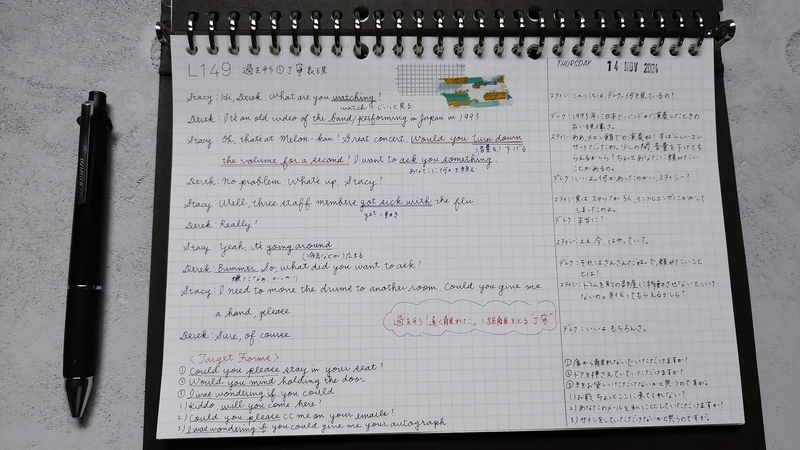 L149 過去形の丁寧表現
THURSDAY 14 NOV 2024
Stacy: Hi, Derek. What are you watching?
watch: じっと見る
Derek: It's an old video of the band performing in Japan in 1993
Stacy: Oh, that's at Melon-kan! Great concert. Would you turn down
(音量を)下げる
the volume for a second? I want to ask you something.
あなたに何かを頼む
Derek: No problem. What's up, Stacy?
Stacy: Well, three staff members got sick with the flu.
Derek: Really?
Stacy: Yeah, it's going around
Derek: Bummer. So, what did you want to ask?
Stacy: I need to move the drums to another room. Could you give me
a hand, please
Derek: Sure, of course
過去形の「遠く離れた」は距離をとる"丁寧"
<Target Forms>
① Could you please stay in your seat?
② Would you mind holding the door
③ I was wondering if you could
1) Kiddo, will you come here?
2) Could you please CC me on your emails?
3) I was wondering if you could give me your autograph
ステイシー: こんにちは、デレク。何を見ているの?
デレク: 1993年に日本でバンドが演奏したときの
古い映像さ。
ステイシー: ああ、メロン館での演奏ね!すばらしいコン
サートだったわ。少しの間 音量を下げても
らえるかしら?ちょっとあなたに頼みたい
ことがあるの。
デレク: いいよ。何かあったのかい、ステイシー?
ステイシー: 実は スタッフが3人、インフルエンザにかかって
しまったのよ。
デレク: 本当に?
ステイシー: ええ 今、はやっていて。
デレク: それはさんざんだね。で、頼みたいこと
とは?
ステイシー: ドラムを別の部屋に移動させないといけ
ないの。手伝ってもらえるかしら?
デレク: いいよ もちろんさ。
① 席から離れないでいただけますか?
② ドアを押さえていていただけますか?
③ 手をお貸しいただけないかと思うのですが。
1) お前、ちょっとここに来てくれない?
2) あなたのメールを私にCCしていただけますか?
3) サインをしていただけないかと思うのですが。